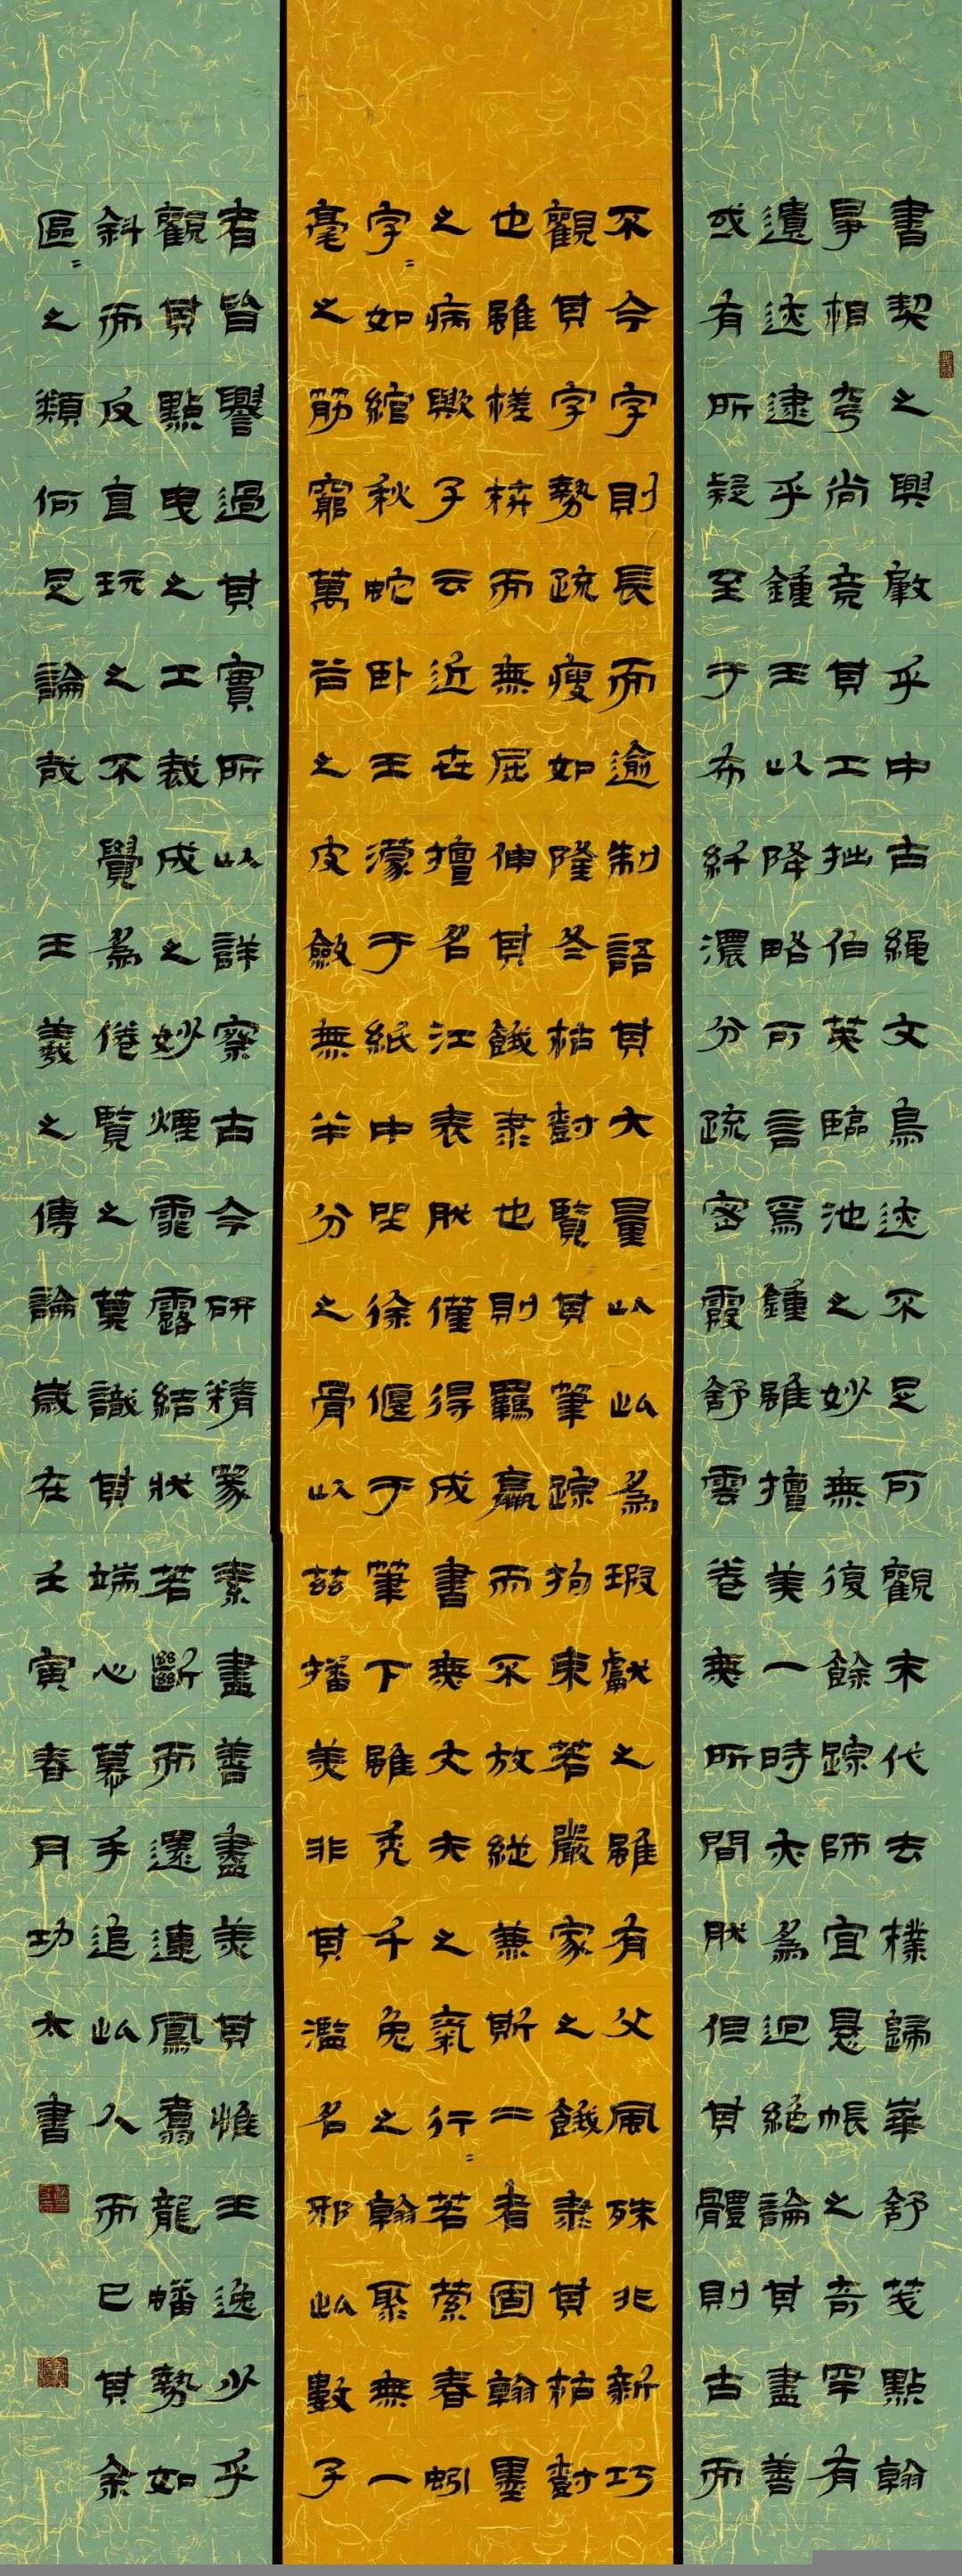 書契之興肇乎中古繩文鳥迹不足可觀末代去樸歸華舒箋點翰
爭相夸尚競其工拙伯英臨池之妙無復餘踪師宜懸帳之奇罕有
遺迹逮乎鍾王以降略可言焉鍾雖擅美一時亦為迥絕論其盡善
或有所疑至于布纖濃分疏密霞舒雲卷無所間然但其體則古而
不今字則長而逾制語其大量以此為瑕獻之雖有父風殊非新巧
觀其字勢疏瘦如隆冬枯樹覽其筆踪拘束若嚴家之餓隸其枯樹
也雖槎枿而無屈伸其餓隸也則羈羸而不放縱兼斯二者固翰墨
之病歟子云近世擅名江表然僅得成書無丈夫之氣行〻若縈春蚓
字〻如綰秋蛇卧王濛于紙中坐徐偃于筆下雖禿千兔之翰聚無一
毫之筋窮萬谷之皮斂無半分之骨以茲播美非其濫名邪此數子
者皆譽過其實所以詳察古今研精篆素盡善盡美其惟王逸少乎
觀其點曳之工裁成之妙煙霏露結狀若斷而還連鳳翥龍蟠勢如
斜而反直玩之不覺為倦覽之莫識其端心慕手追此人而已其余
區〻之類何足論哉 王羲之傳論歲在壬寅春月功太書